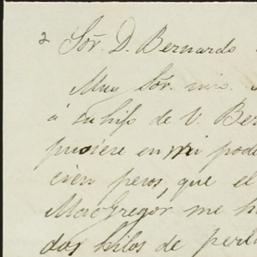 2 Sor. D. Bernardo
Muy Sor. mio.
á su hijo de V. Ber
pusiere en mi pode
cien pesos, que el
MacGregor me h
dos hilos de perl